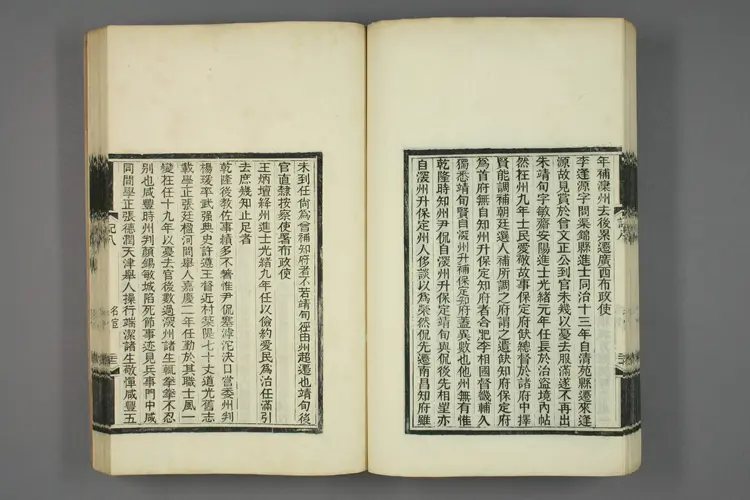 年補灤州去後累遷廣西布政使
李逢源字問渠鎔縣進士同治十三年自清苑縣遷來逢
源故見賞於曾文正公到官未幾以憂去服滿遂不再出
朱靖旬字敏齋安陽進士光緒元年任長於治盜境內帖
然在州九年士民愛敬故事保定府缺總督於諸府中擇
賢能調補朝廷選人補所調之府謂之遺缺知府保定府
為首府無自知州升保定知府者合肥李相國督畿輔入
獨悉靖旬賢自深州升補保定知府蓋異數也他州無有惟
乾隆時知州尹侃自深州升保定靖旬與侃後先相望亦
自深州升保定州人侈談以為榮然侃先遷南昌知府雖
未到任尚為曾補知府者不若靖旬徑由州超遷也靖旬後
官直隸按察使署布政使
王炳壇絳州進士光緒九年任以儉約愛民為治任滿引
去庶幾知止足者
乾隆後教佐事績多不著惟尹侃塞滹沱決口當委州判
楊璦平武强典史許遵王督近村築隄七十丈道光舊志
載學正張廷楹河間舉人嘉慶二年任勤於其職士風一
變在任十九年以憂去官後數過深州諸生輒拳拳不忍
別也咸豐時州判顏錫敏城陷死節事迹見兵事門中咸
同間學正張德潤天津舉人操行端潔諸生敬憚咸豐五
記八
名宦